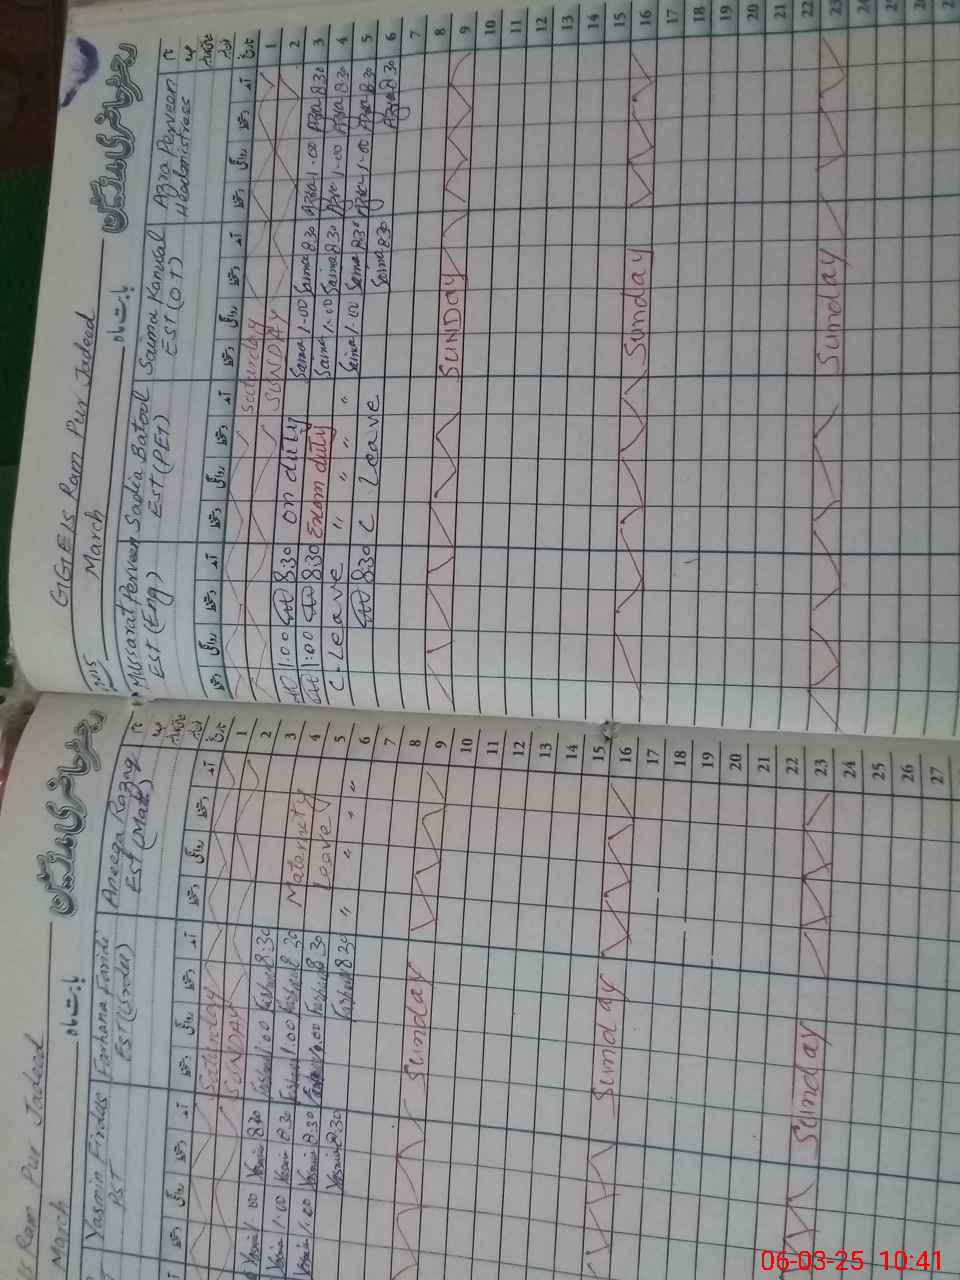 GGES Ram Pur Jadeed
رجسٹر حاضری مدرسین
March
بابت ماہ
Mussarat Perveen
EST (Eng)
Sadia Batool
EST (PET)
Saima Kanwal
EST (O.T)
Azra Perveen
Headmistress
1 Saturday
2 SUNDAY
3 1:00 8:30 on duty Saima 1.00 Saima 8:30 Azra 1.00 Azra 8:30
4 1:00 8:30 Exam duty Saima 1.00 Saima 8:30 Azra 1.00 Azra 8:30
5 C. Leave " " " " Saima 1.00 Saima 8:30 Azra 1.00 Azra 8:30
6 8:30 C. Leave Saima 8:30 Azra 8:30
7
8
9 SUNDAY
10
11
12
13
14
15
16 Sunday
17
18
19
20
21
22
23 Sunday
24
25
26
27
Ram Pur Jadeed
رجسٹر حاضری مدرسین
March
بابت ماہ
Yasmin Firdus
PST
Farhana Faridi
EST (Urdu)
Aneega Razaq
EST (Math)
1 Saturday
2 SUNDAY
3 Yasmin 1.00 Yasmin 8:30 Farhana 1:00 Farhana 8:30 Maternity
4 Yasmin 1.00 Yasmin 8:30 Farhana 1:00 Farhana 8:30 Leave
5 Yasmin 1.00 Yasmin 8:30 Farhana 1.00 Farhana 8:30 " " " "
6 Yasmin 8:30 Farhana 8:30
7
8
9 Sunday
10
11
12
13
14
15
16 Sunday
17
18
19
20
21
22
23 Sunday
24
25
26
27
06-03-25 10:41